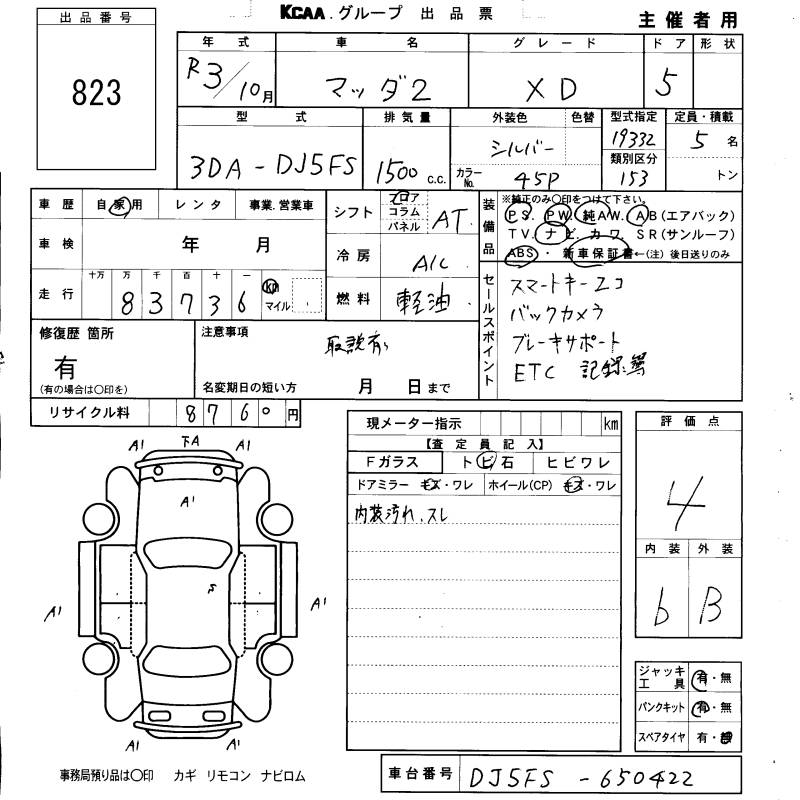 KCAA.グループ 出品票
主催者用
出品番号
823
年式 車名 グレード ドア 形状
R3/10月 マツダ2 XD 5
型式 排気量 外装色 色替 型式指定 定員・積載
3DA-DJ5FS 1500c.c. シルバー 19332 5名
カラーNo. 45P 類別区分 153 トン
車歴 自家用 レンタ 事業.営業車
シフト フロア コラム パネル AT
装備品 ※純正のみ○印をつけて下さい。
PS. PW. 純AW. AB(エアバック)
TV. ナビ. カワ. SR(サンルーフ)
ABS・新車保証書←(注)後日送りのみ
車検 年 月
冷房 A/C
走行 十万 万 千 百 十 一
83736 km マイル
燃料 軽油
セールスポイント
スマートキー エコ
バックカメラ
ブレーキサポート
ETC 記録簿
修復歴 箇所
有
(有の場合は○印を)
注意事項
取説有
名変期日の短い方 月 日まで
リサイクル料 8760円
現メーター指示 km
【査定員記入】
Fガラス トビ石 ヒビワレ
ドアミラー キズ・ワレ ホイール(CP) キズ・ワレ
内装汚れ、スレ
評価点
4
内装 外装
b B
A1 下A A1
A1
A1
A1
A1 A1
ジャッキ工具 有・無
パンクキット 有・無
スペアタイヤ 有・無
事務局預り品は○印 カギ リモコン ナビロム
車台番号 DJ5FS-650422